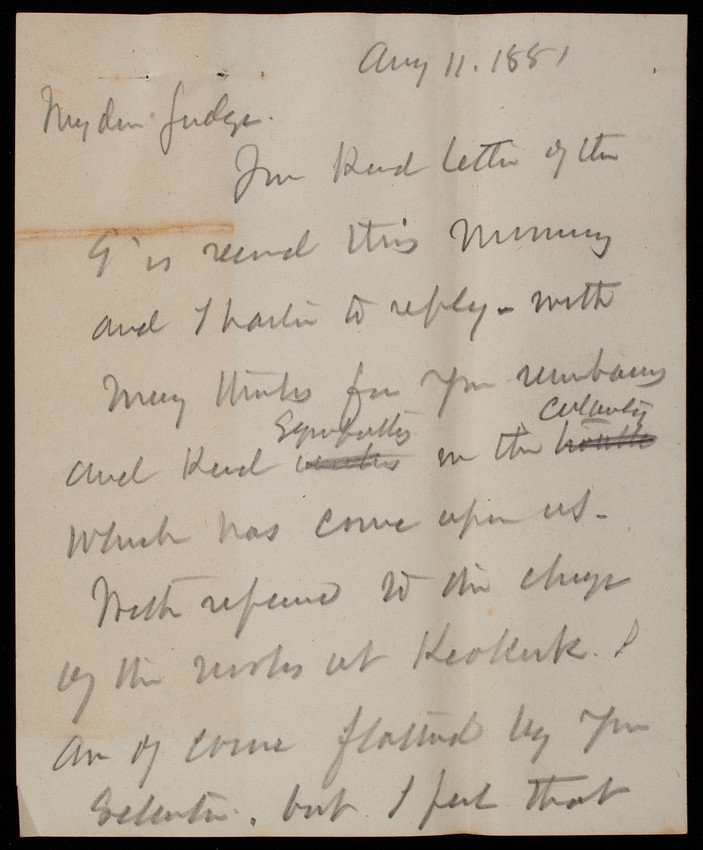 Aug 11. 1881
My dear Judge.
Your kind letter of the
9' is received this morning
and I hasten to reply - with
Many thanks for your remembrances
Sympathy calamity
and kind wishes in the trouble
which has come upon us -
With reference to the charge
of the works at Keokuk. I
am of course flattered by your
Selection. but I feel that